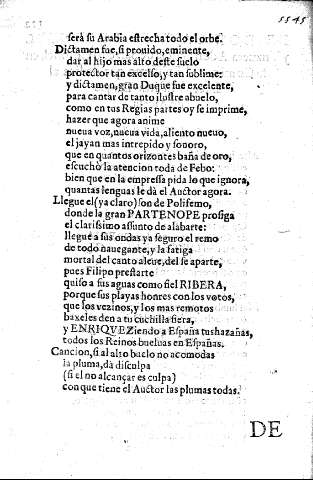 5545
serà su Arabia estrecha todo el orbe.
Dictamen fue, si prouido, eminente,
dar al hijo mas alto deste suelo
protector tan excelso, y tan sublime:
y dictamen, gran Duque fue excelente,
para cantar de tanto ilustre abuelo,
como en tus Regias partes oy se imprime,
hazer que agora anime
nueua voz, nueua vida, aliento nueuo,
el jayan mas intrepido y sonoro,
que en quantos orizontes baña de oro,
escuchò la atencion toda de Febo:
bien que en la empressa pida lo que ignora,
quantas lenguas le dà el Auctor agora.
Llegue el (ya claro) son de Polifemo,
donde la gran PARTENOPE prosiga
el clarissimo assunto de alabarte:
llegue a sus ondas ya seguro el remo
de todo nauegante, y la fatiga
mortal del canto aleue, del se aparte,
pues Filipo prestarte
quiso a sus aguas como fiel RIBERA,
porque sus playas honres con los votos,
que los vezinos, y los mas remotos
baxeles den a tu cuchilla fiera,
y ENRIQVEZiendo a España tus hazañas,
todos los Reinos bueluas en Españas.
Cancion, si al alto buelo no acomodas
la pluma, dà disculpa
(si el no alcançar es culpa)
con que tiene el Auctor las plumas todas.
DE